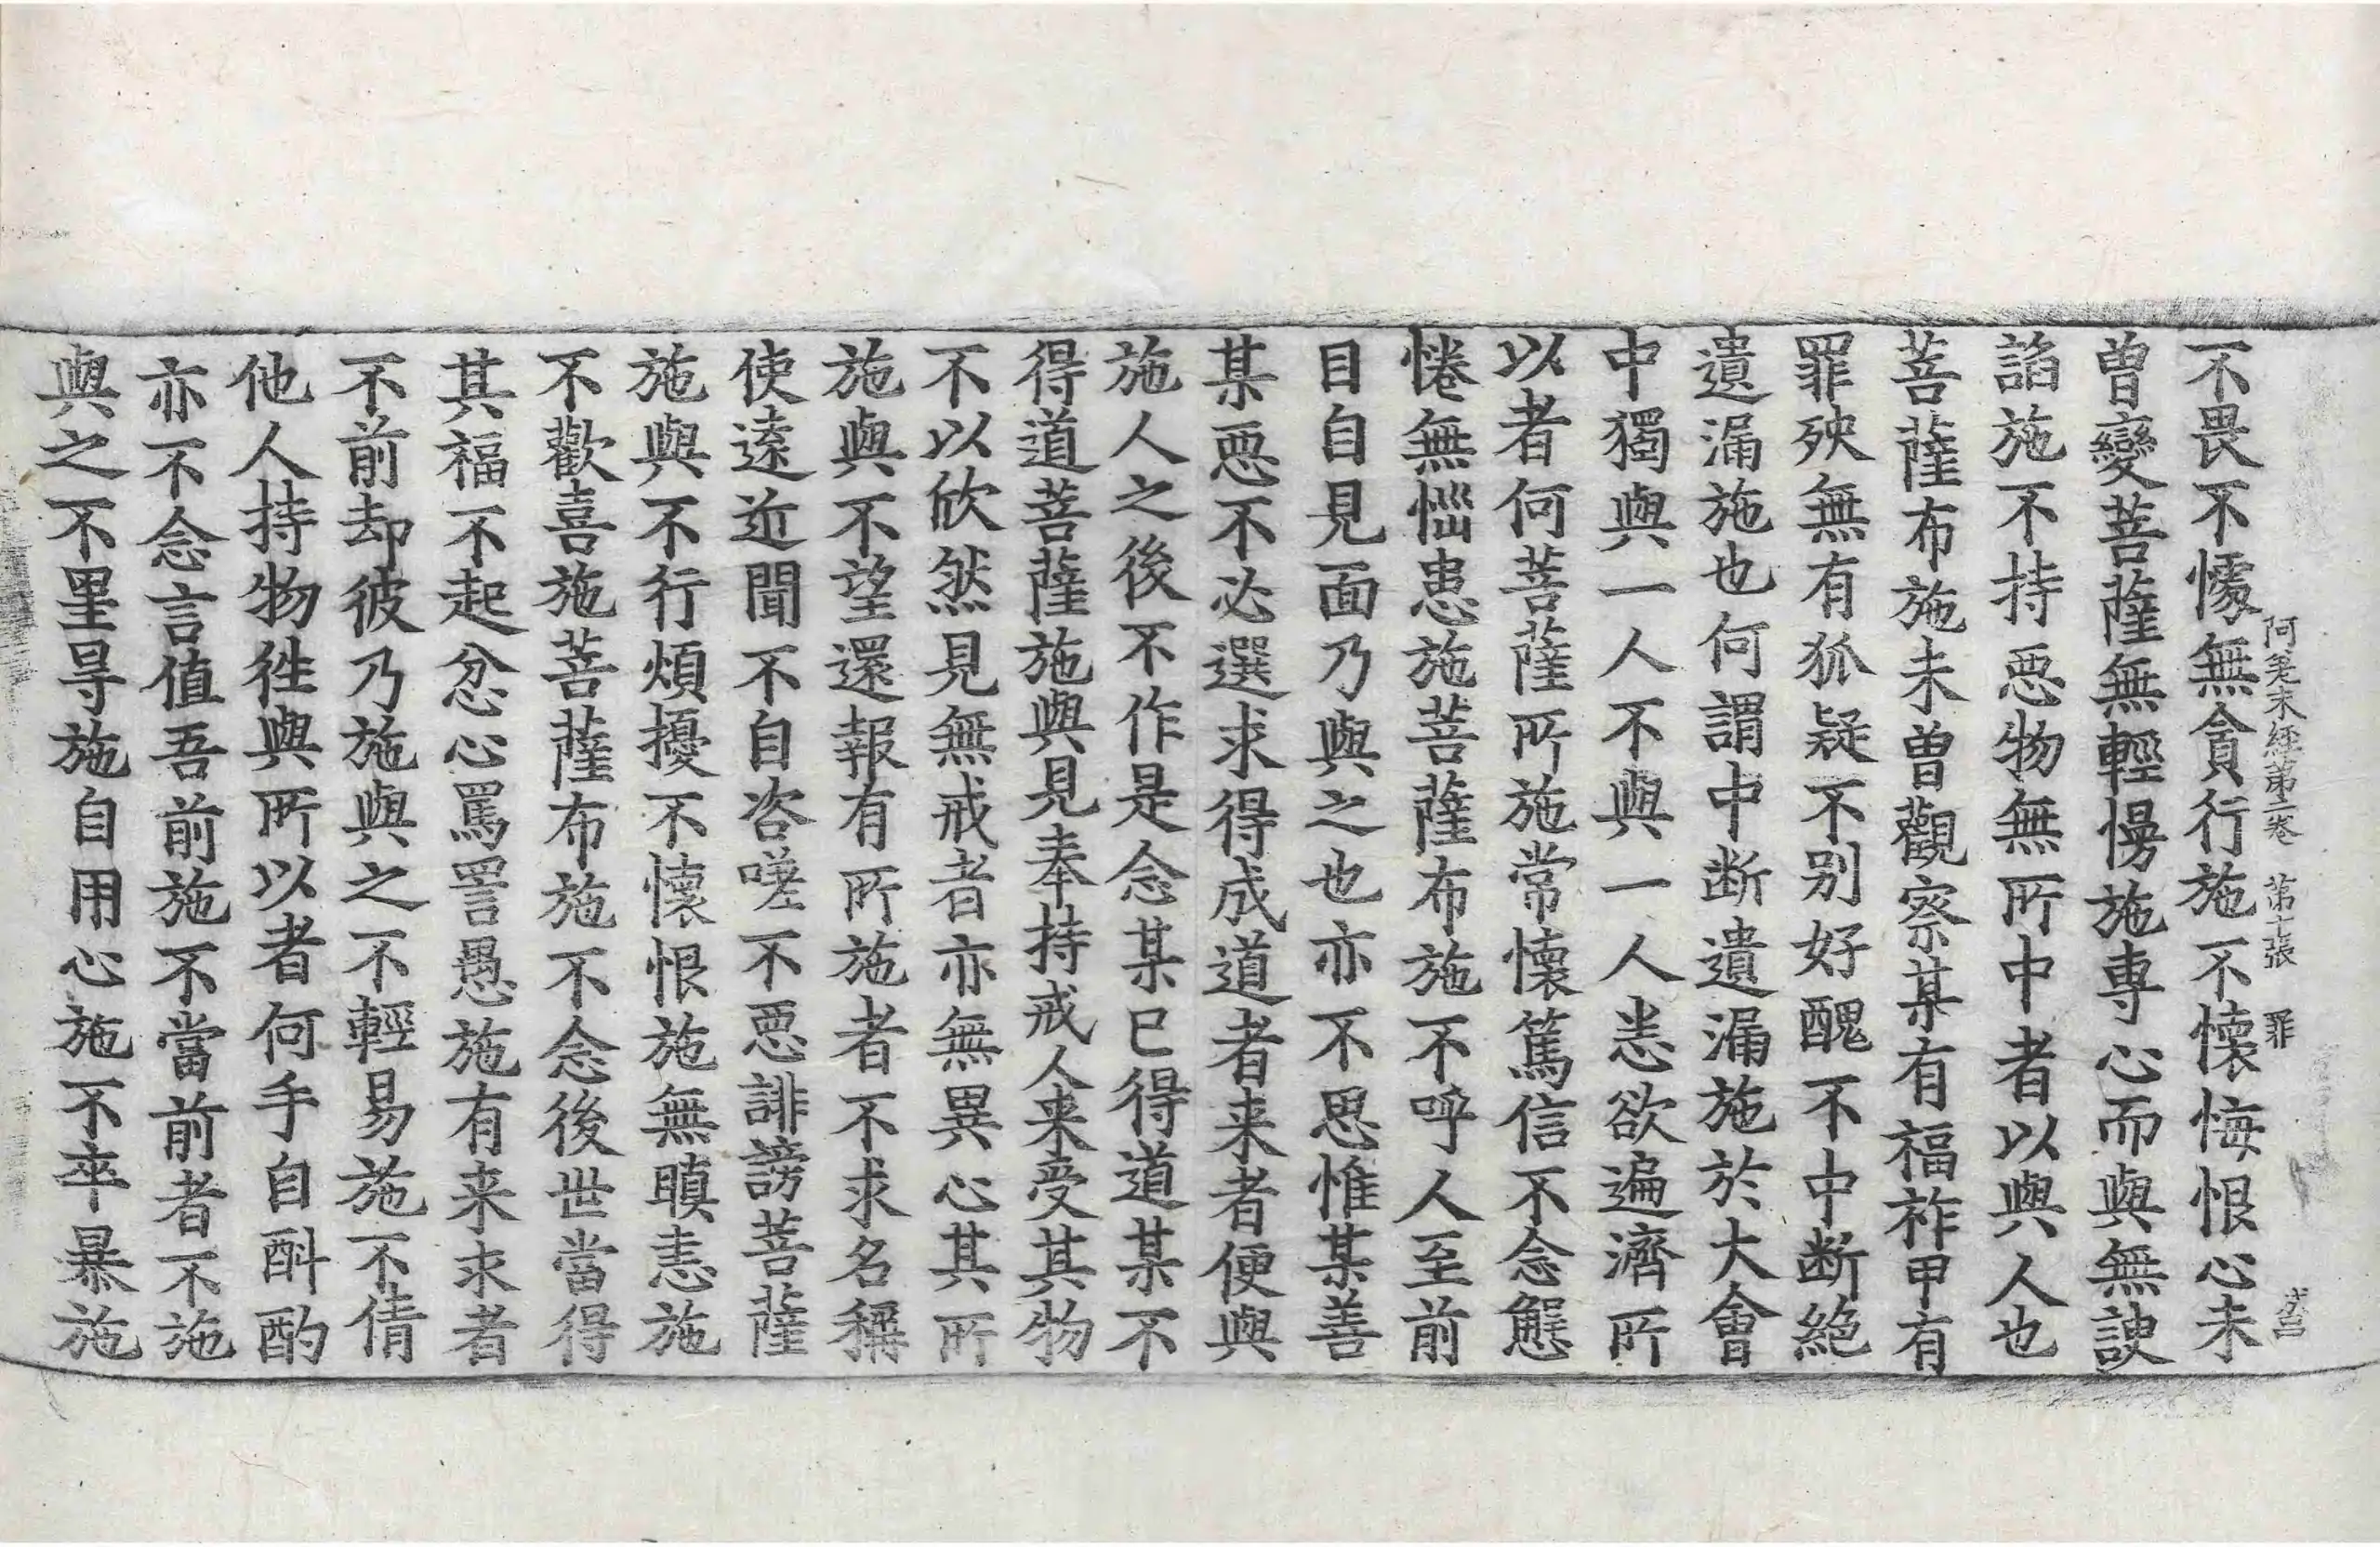 不畏不懅無貪行施不懷悔恨心未
阿差末經第二卷 第七張 罪
曾變菩薩無輕慢施專心而與無諛
諂施不持惡物無所中者以與人也
菩薩布施未曾觀察某有福祚甲有
罪殃無有狐疑不別好醜不中断絕
遺漏施也何謂中断遺漏施於大會
中獨與一人不與一人恚欲遍濟所
以者何菩薩所施常懷篤信不念懈
惓無惱患施菩薩布施不呼人至前
目自見面乃與之也亦不思惟某善
某惡不必選求得成道者来者便與
施人之後不作是念某已得道某不
得道菩薩施與見奉持戒人来受其物
不以欣然見無戒者亦無異心其所
施與不望還報有所施者不求名稱
使遠近聞不自咨嗟不惡誹謗菩薩
施與不行煩擾不懷恨施無瞋恚施
不歡喜施菩薩布施不念後世當得
其福不起忿心罵詈愚施有来求者
不前却彼乃施與之不輕易施不倩
他人持物往與所以者何手自斟酌
亦不念言值吾前施不當前者不施
與之不罣㝵施自用心施不卒暴施